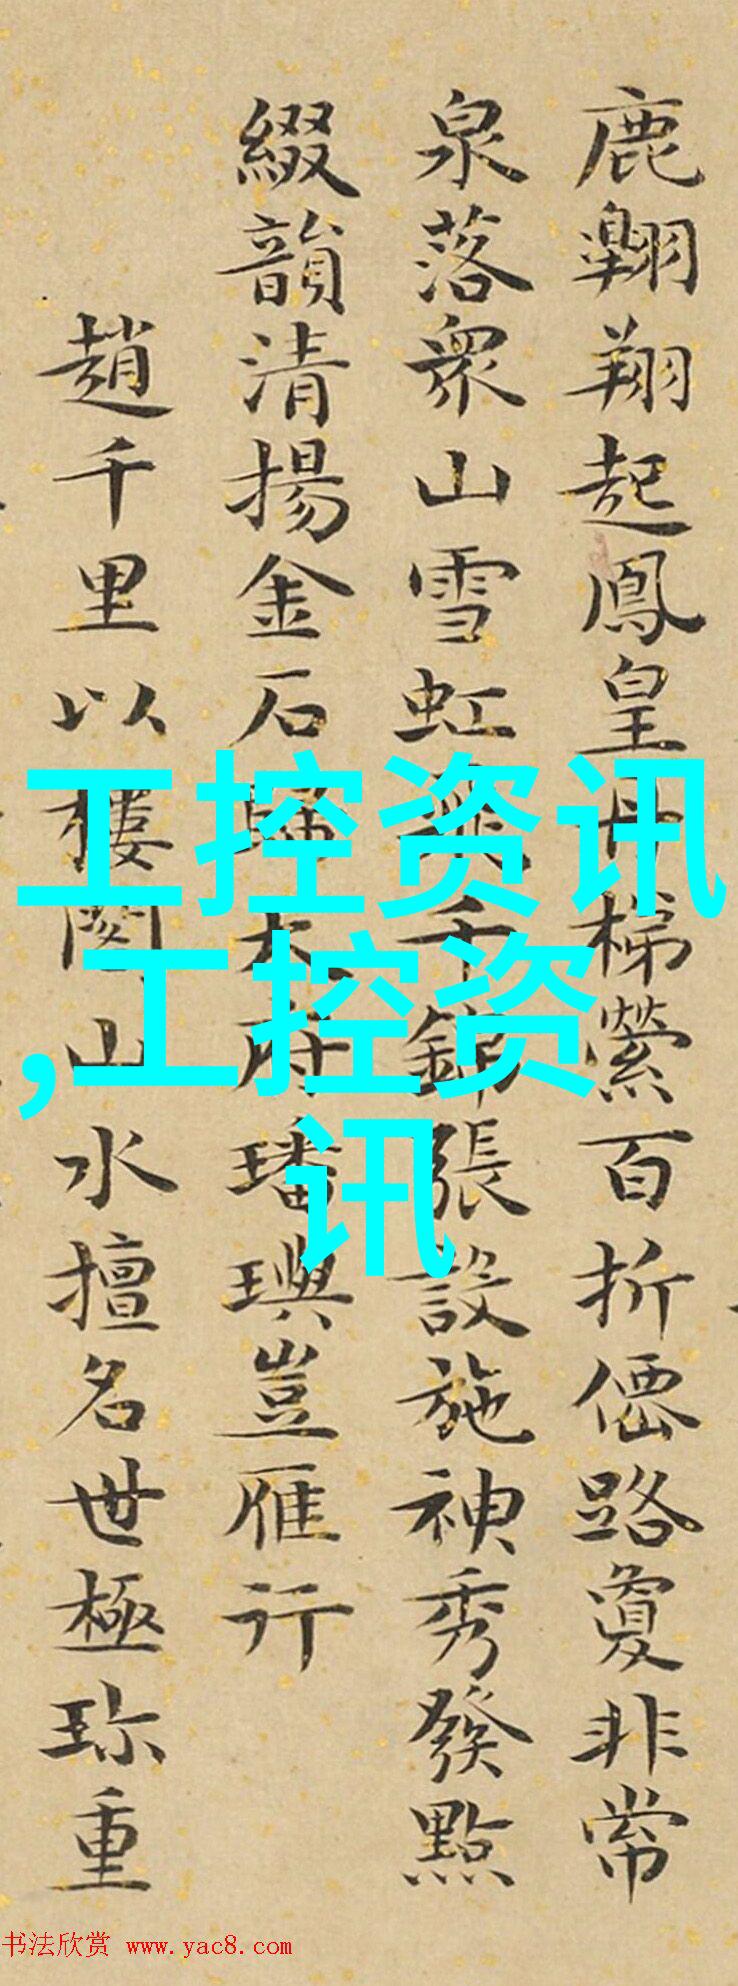 鹿翱翔起鳳皇丹梯縈百折僊路敻非常
泉落衆山雪虹飛千錦張設施神秀發點
綴韻清揚金石歸大府璠璵豈雁行
趙千里以樓閣山水擅名世極珎重
工控资讯
,工控资
讯
书法欣赏 www.yac8.com